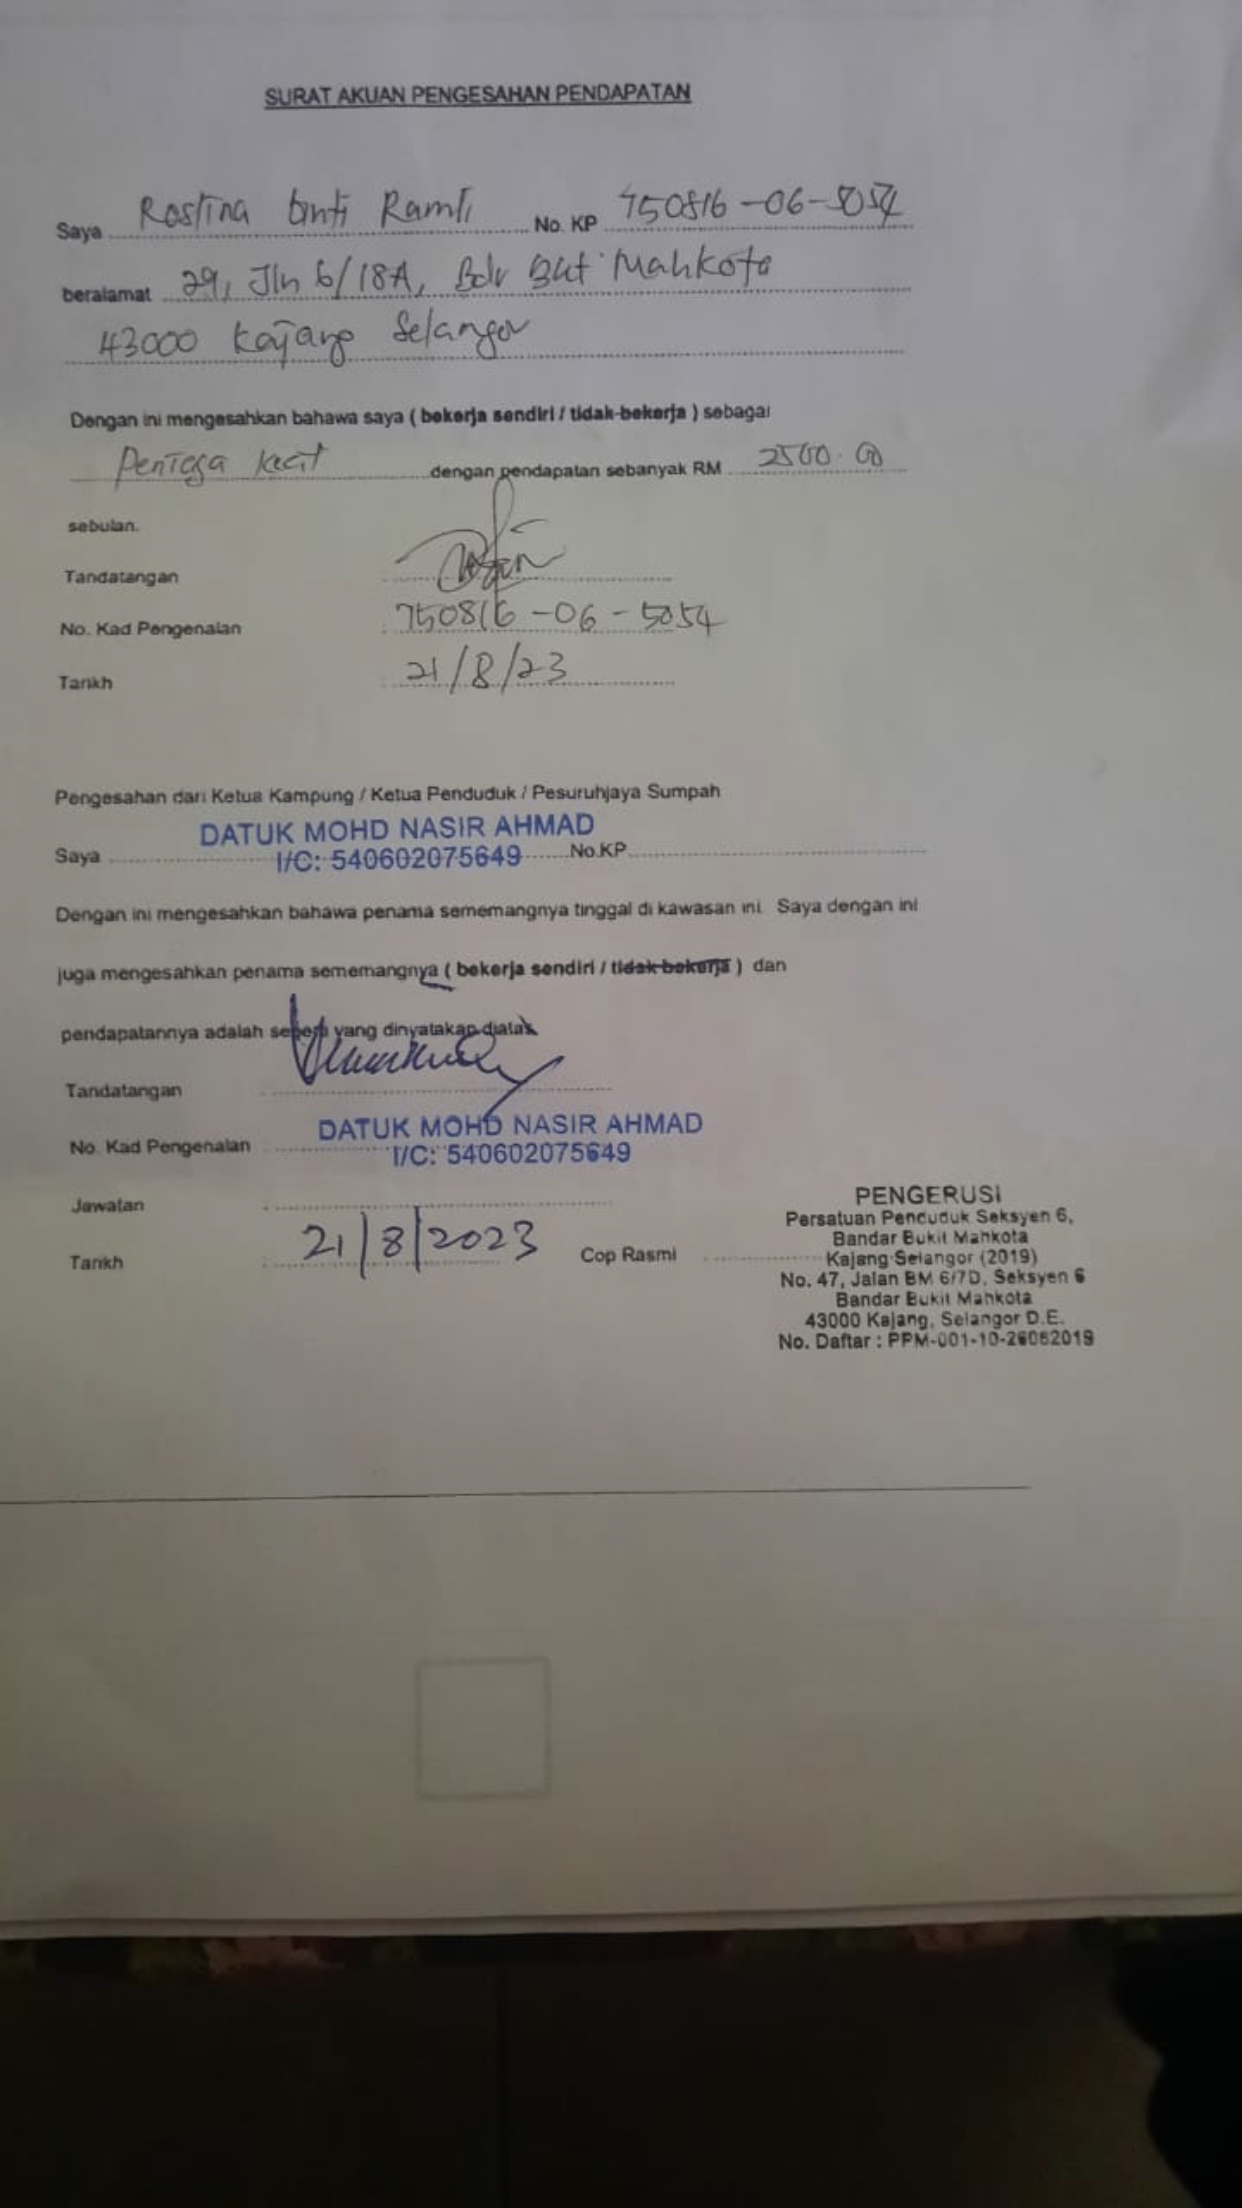 SURAT AKUAN PENGESAHAN PENDAPATAN
Saya Rostina binti Ramli No. KP 750816-06-5054
beralamat 29, Jln 6/18A, Bdr Bkt Mahkota
43000 Kajang Selangor
Dengan ini mengesahkan bahawa saya ( bekerja sendiri / tidak bekerja ) sebagai
Peniaga kecil dengan pendapatan sebanyak RM 2500.00
sebulan.
Tandatangan
No. Kad Pengenalan : 750816-06-5054
Tarikh : 21/8/23
Pengesahan dari Ketua Kampung / Ketua Penduduk / Pesuruhjaya Sumpah
DATUK MOHD NASIR AHMAD
Saya I/C: 540602075649 No.KP
Dengan ini mengesahkan bahawa penama sememangnya tinggal di kawasan ini. Saya dengan ini
juga mengesahkan penama sememangnya ( bekerja sendiri / tidak bekerja ) dan
pendapatannya adalah seperti yang dinyatakan diatas
Tandatangan
DATUK MOHD NASIR AHMAD
No. Kad Pengenalan I/C: 540602075649
Jawatan :
Tarikh : 21/8/2023 Cop Rasmi
PENGERUSI
Persatuan Penduduk Seksyen 6,
Bandar Bukit Mahkota
Kajang Selangor (2019)
No. 47, Jalan BM 6/7D, Seksyen 6
Bandar Bukit Mahkota
43000 Kajang, Selangor D.E.
No. Daftar : PPM-001-10-26062019